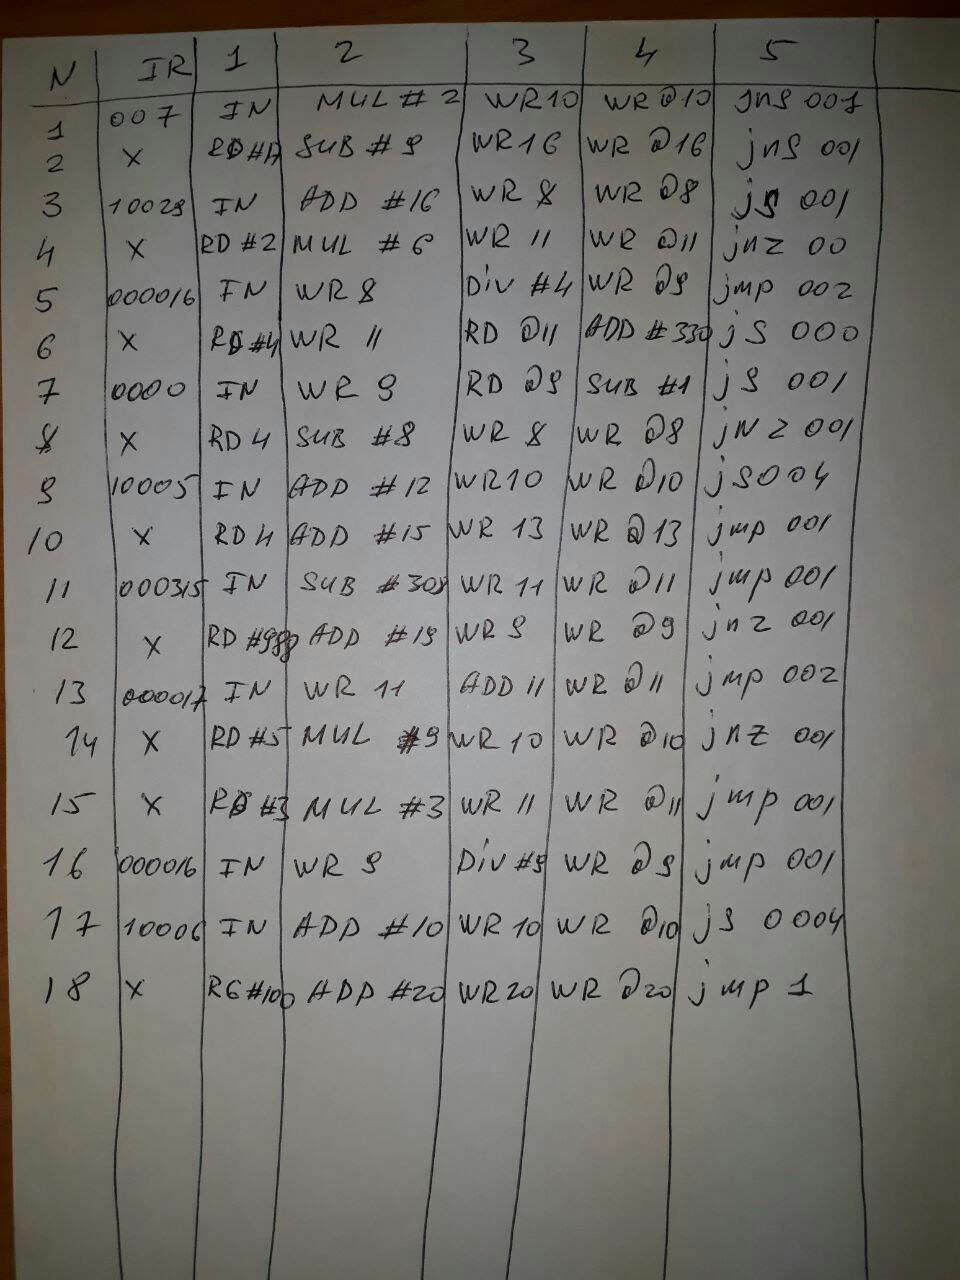 N IR 1 2 3 4 5
1 007 IN MUL #2 WR10 WR @10 jns 001
2 X RD #17 SUB #9 WR16 WR @16 jns 001
3 10029 IN ADD #16 WR 8 WR @8 js 001
4 X RD #2 MUL #6 WR 11 WR @11 jnz 00
5 000016 IN WR 8 Div #4 WR @9 jmp 002
6 X RD #4 WR 11 RD @11 ADD #330 js 000
7 0000 IN WR 9 RD @9 SUB #1 js 001
8 X RD 4 SUB #8 WR 8 WR @8 jnz 001
9 10005 IN ADD #12 WR10 WR @10 js004
10 X RD 4 ADD #15 WR 13 WR @13 jmp 001
11 000315 IN SUB #308 WR 11 WR @11 jmp 001
12 X RD ADD #19 WR 9 WR @9 jnz 001
13 000017 IN WR 11 ADD 11 WR @11 jmp 002
14 X RD #5 MUL #9 WR 10 WR @10 jnz 001
15 X RD #3 MUL #3 WR 11 WR @11 jmp 001
16 000016 IN WR 9 Div #9 WR @9 jmp 001
17 10006 IN ADD #10 WR 10 WR @10 js 0004
18 X RG #100 ADD #20 WR20 WR @20 jmp 1